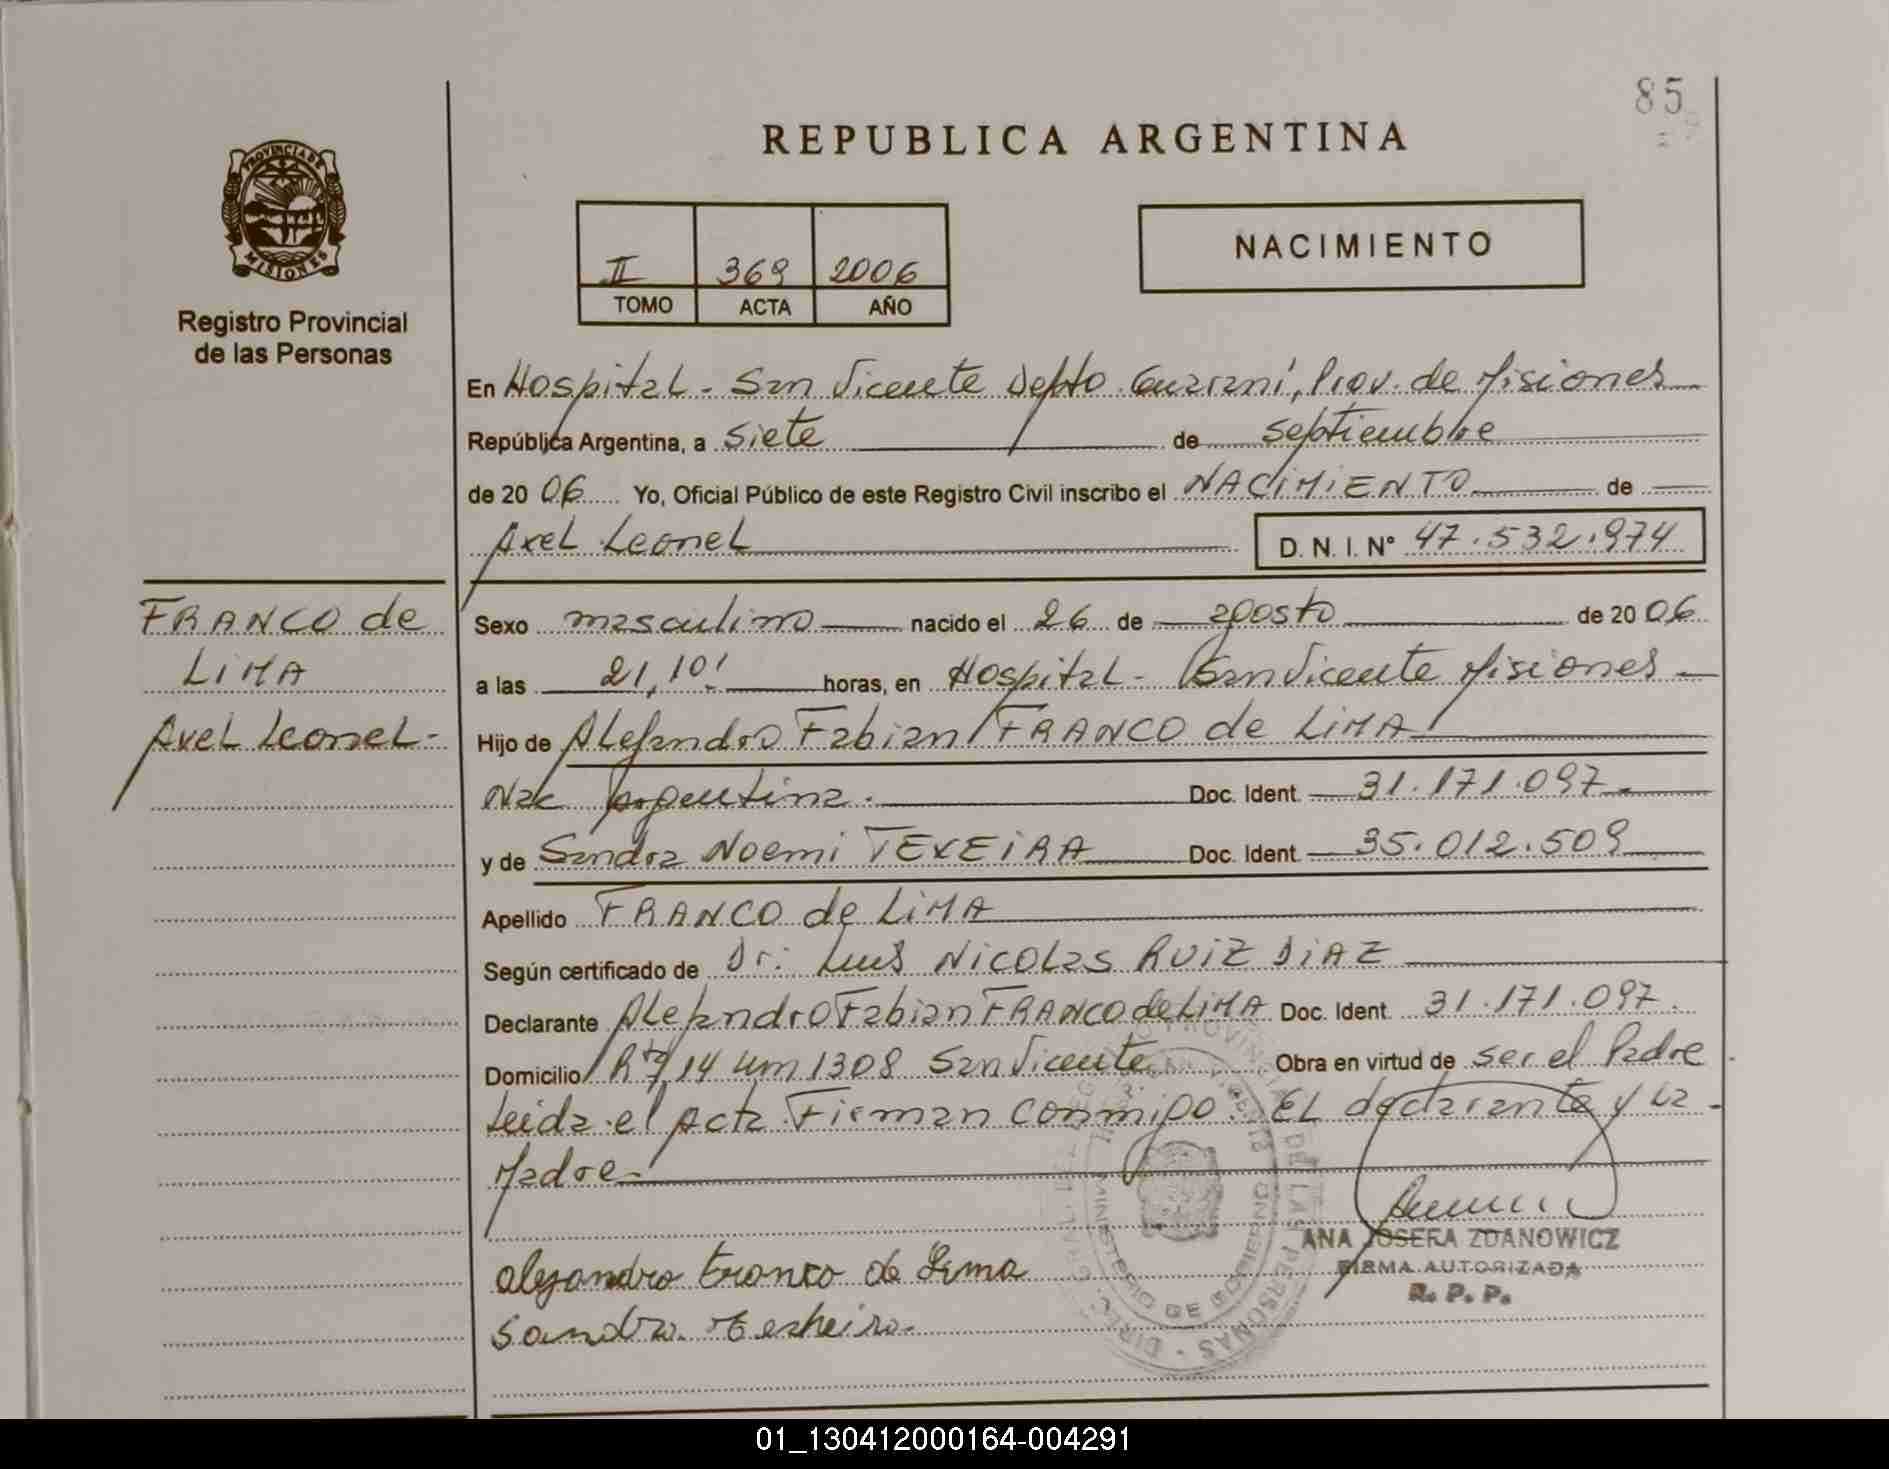 85
REPUBLICA ARGENTINA
PROVINCIA DE
MISIONES
Registro Provincial
de las Personas
II 369 2006
TOMO ACTA AÑO
NACIMIENTO
En Hospital - San Vicente Depto. Guaraní, Prov. de Misiones
República Argentina, a siete de septiembre
de 20 06 Yo, Oficial Público de este Registro Civil inscribo el NACIMIENTO de
Axel Leonel D. N. I. Nº 47.532.974
FRANCO de
LIMA
Axel Leonel-
Sexo masculino nacido el 26 de agosto de 20 06
a las 21,10' horas, en Hospital - San Vicente Misiones -
Hijo de Alejandro Fabian FRANCO de LIMA
Nac Argentina. Doc. Ident. 31.171.097.-
y de Sandra Noemi TEXEIRA Doc. Ident. 35.012.509
Apellido FRANCO de LIMA
Según certificado de Dr. Luis Nicolas RUIZ DIAZ
Declarante Alejandro Fabian FRANCO de LIMA Doc. Ident. 31.171.097.
Domicilio Rta 14 Km 1308 San Vicente Obra en virtud de ser el Padre
Leida el Acta Firman conmigo: EL declarante y La -
Madre.-
ANA JOSEFA ZDANOWICZ
FIRMA AUTORIZADA
R. P. P.
MINISTERIO DE GOBIERNO
DE LAS PERSONAS
alejandro franco de Lima
Sandra Texheira.
01_130412000164-004291